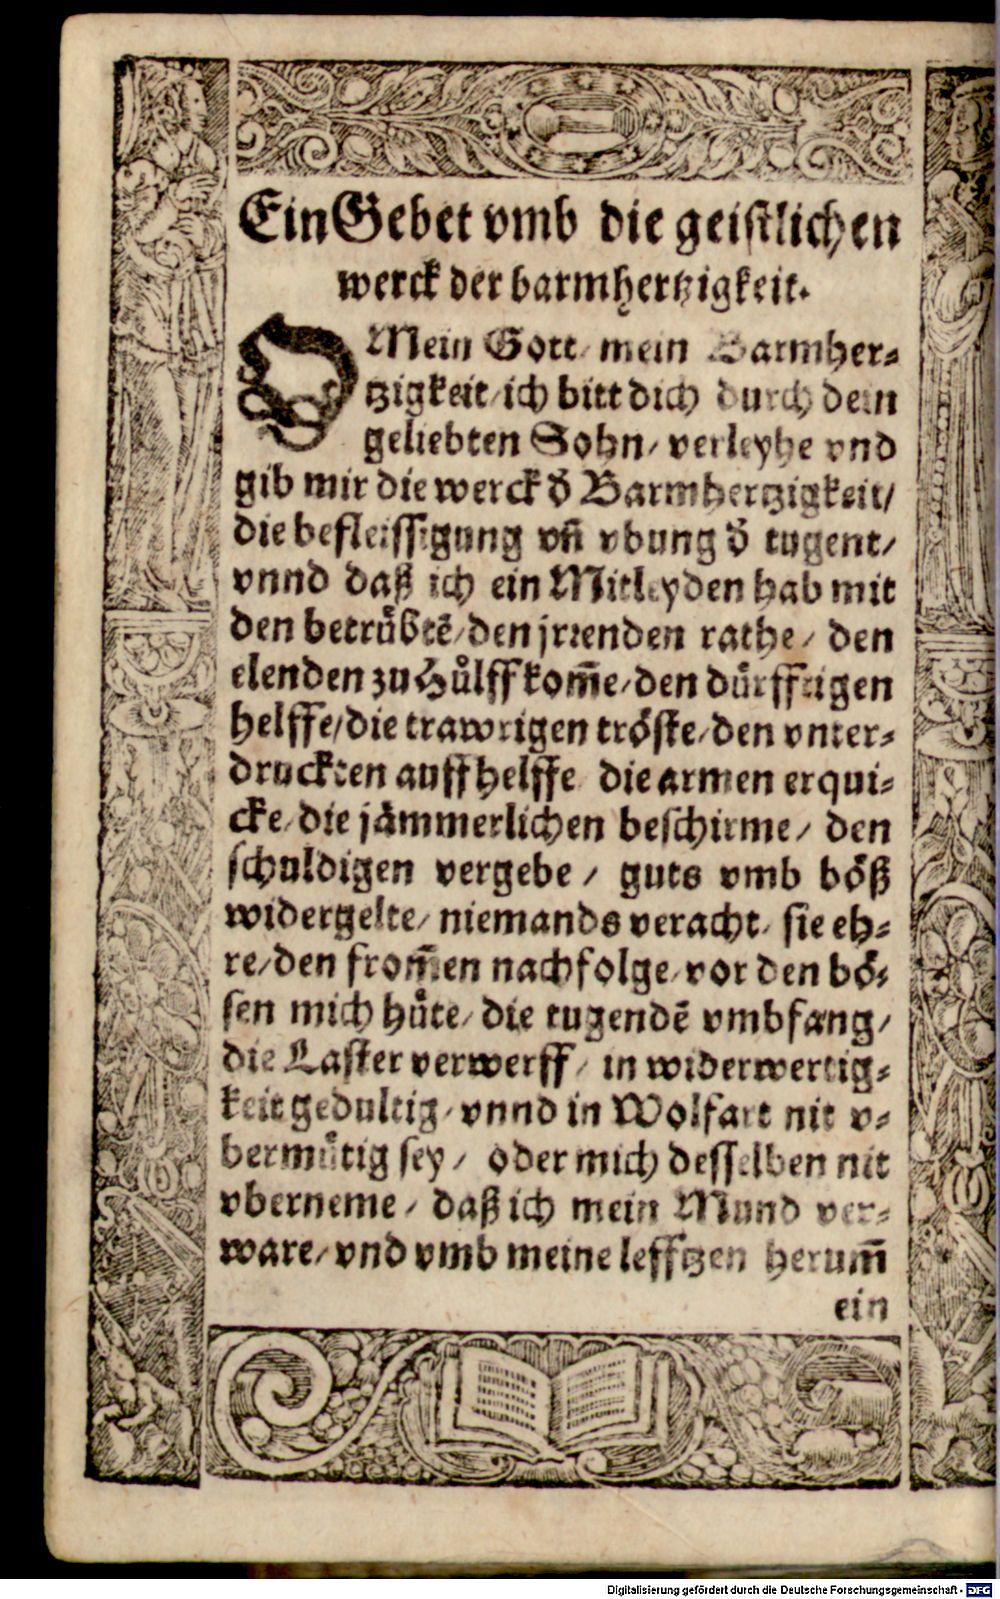 Ein Gebet vmb die geistlichen
werck der barmhertzigkeit.
O Mein Gott / mein Barmher-
tzigkeit / ich bitt dich durch dein
geliebten Sohn / verleyhe vnd
gib mir die werck d̓ Barmhertzigkeit /
die befleissigung vñ vbung d̓ tugent /
vnnd daß ich ein Mitleyden hab mit
den betrůbtẽ / den jrrenden rathe / den
elenden zu Hůlff kom̃e / den důrfftigen
helffe / die trawrigen tröste / den vnter-
druckten auffhelffe die armen erqui-
cke / die jämmerlichen beschirme / den
schuldigen vergebe / guts vmb böß
widergelte / niemands veracht / sie eh-
re / den from̃en nachfolge / vor den bö-
sen mich hůte / die tugendẽ vmbfang /
die Laster verwerff / in widerwertig-
keit gedultig / vnnd in Wolfart nit v-
bermůtig sey / oder mich desselben nit
vberneme / daß ich mein Mund ver-
ware / vnd vmb meine lefftzen herum̃
ein
Digitalisierung gefördert durch die Deutsche Forschungsgemeinschaft - DFG